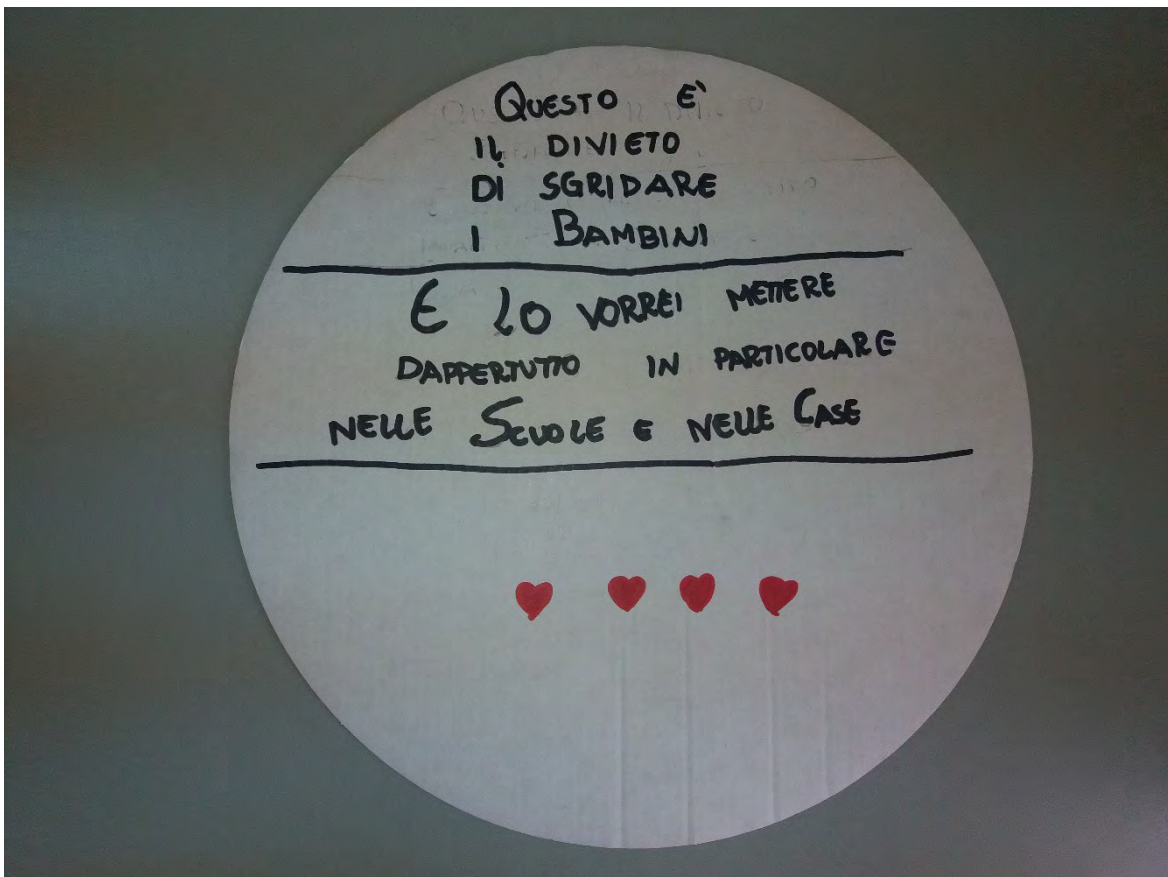 QUESTO E'
IL DIVIETO
DI SGRIDARE
I BAMBINI
E LO VORREI METTERE
DAPPERTUTTO IN PARTICOLARE
NELLE SCUOLE E NELLE CASE